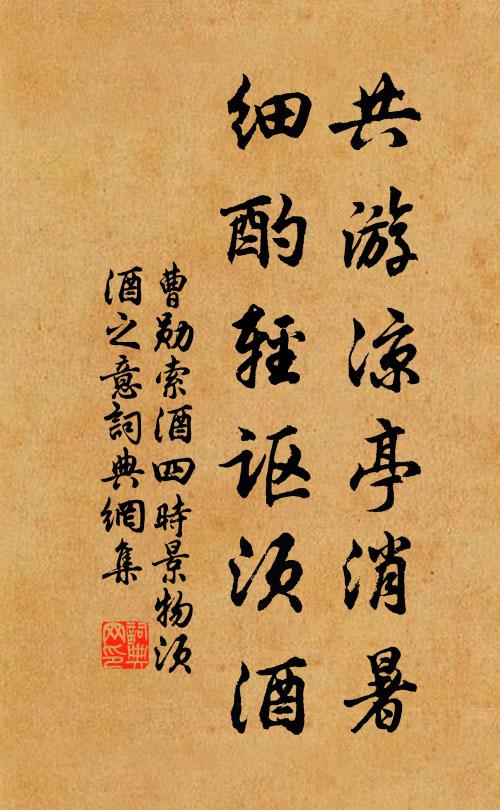 共游凉亭消暑
细酌轻讴须酒
曹勋索酒四時景物须
酒之意詞典網集
詞典
网印